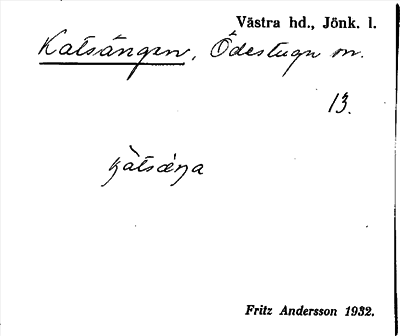 Västra hd., Jönk. l.
Katsängen, Ödestugu sn.
13.
kàtsæ̀ŋa
Fritz Andersson 1932.